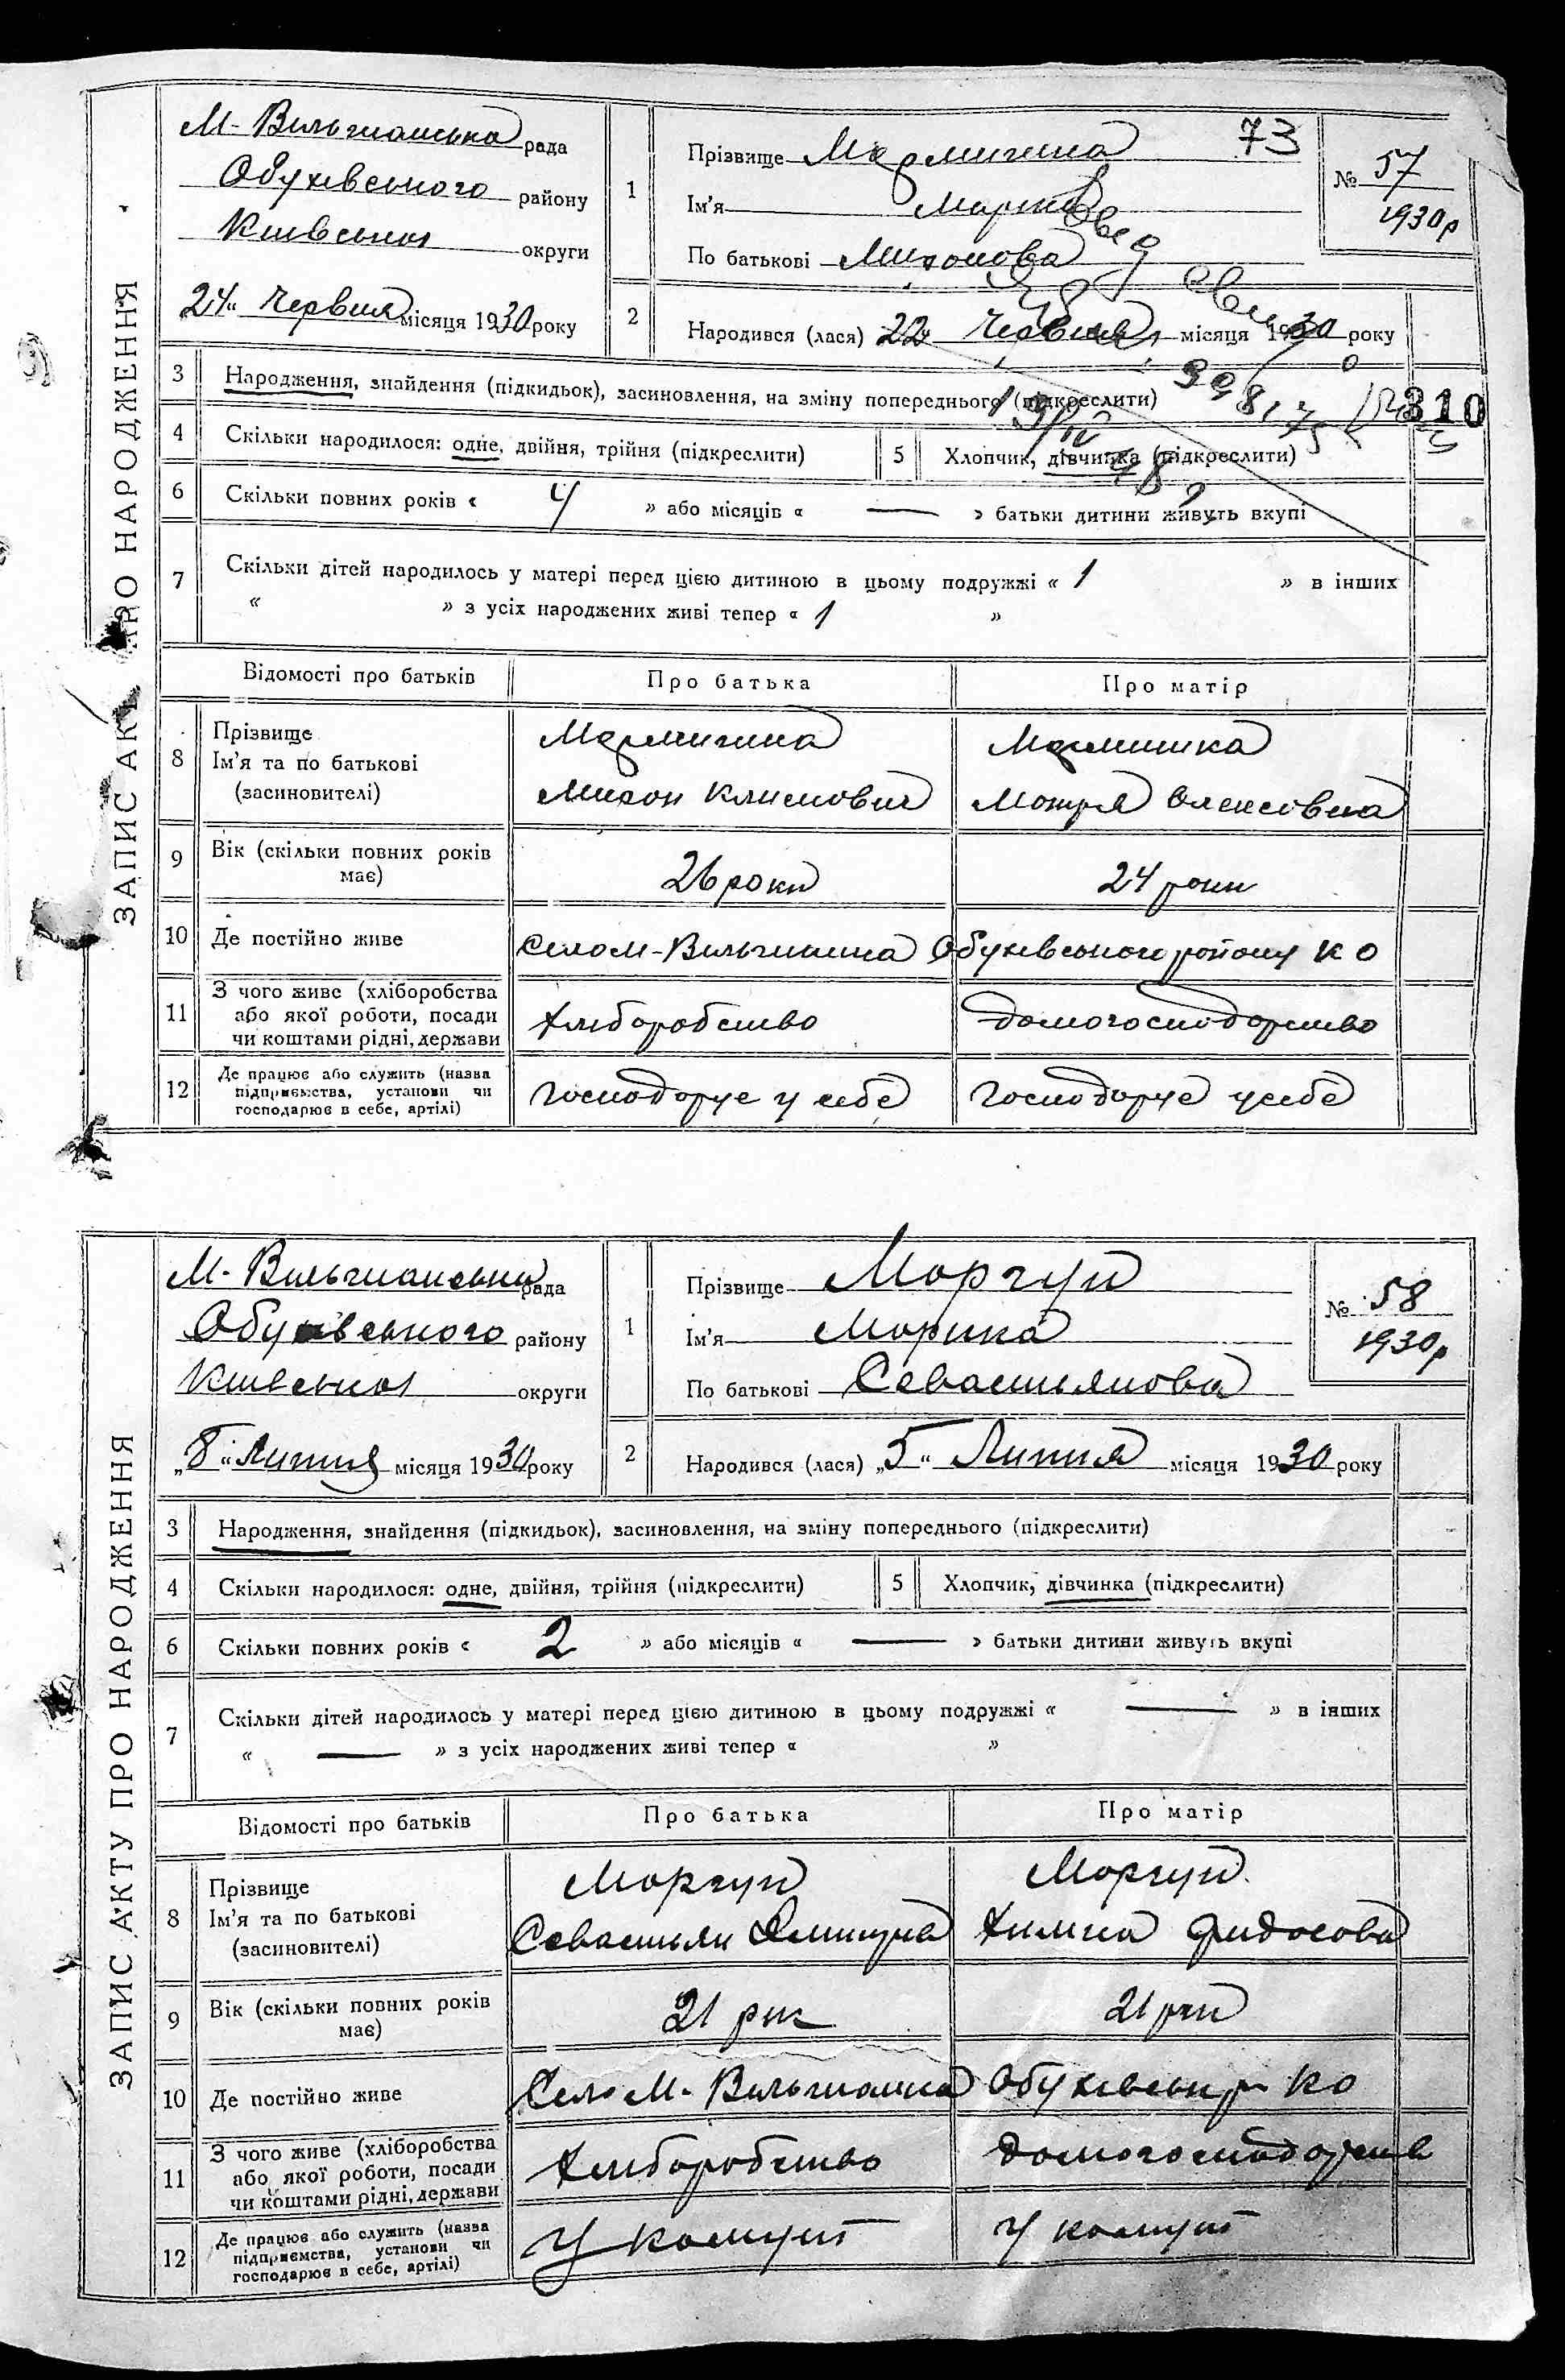 ЗАПИС АКТУ ПРО НАРОДЖЕННЯ
М-Вильшанська рада
Обухівського району
Київської округи
"24" Червня місяця 1930 року
1
Прізвище
73
Ім'я Марина
По батькові Миронова
№ 57
1930р
2
Народився (лася) 22 Червня місяця 1930 року
3 Народження, знайдення (підкидьок), засиновлення, на зміну попереднього (підкреслити)
310
4 Скільки народилося: одне, двійня, трійня (підкреслити)
5 Хлопчик, дівчинка (підкреслити)
6 Скільки повних років « 4 » або місяців « — » батьки дитини живуть вкупі
7 Скільки дітей народилось у матері перед цією дитиною в цьому подружжі « 1 » в інших
« » з усіх народжених живі тепер « 1 »
Відомості про батьків
Про батька
Про матір
8 Прізвище
Ім'я та по батькові
(засиновителі)
Мирон Климович
Мотря Олексівна
9 Вік (скільки повних років
має)
26 роки
24 роки
10 Де постійно живе
Село М-Вильшанка Обухівського району К О
11 З чого живе (хліборобства
або якої роботи, посади
чи коштами рідні, держави
Хліборобство
домогосподорство
12 Де працює або служить (назва
підприємства, установи чи
господарює в себе, артілі)
Господорує у себе
Господорує у себе
ЗАПИС АКТУ ПРО НАРОДЖЕННЯ
М-Вильшанська рада
Обухівського району
Київської округи
"8" Липня місяця 1930 року
1
Прізвище Моргун
Ім'я Марина
По батькові Севастьянова
№ 58
1930р
2
Народився (лася) "5" Липня місяця 1930 року
3 Народження, знайдення (підкидьок), засиновлення, на зміну попереднього (підкреслити)
4 Скільки народилося: одне, двійня, трійня (підкреслити)
5 Хлопчик, дівчинка (підкреслити)
6 Скільки повних років « 2 » або місяців « — » батьки дитини живуть вкупі
7 Скільки дітей народилось у матері перед цією дитиною в цьому подружжі « — » в інших
« — » з усіх народжених живі тепер « »
Відомості про батьків
Про батька
Про матір
8 Прізвище
Ім'я та по батькові
(засиновителі)
Моргун
Севастьян
Моргун
Химка Фидосова
9 Вік (скільки повних років
має)
21 рік
21 рік
10 Де постійно живе
Село М-Вильшанка Обухівськ р- КО
11 З чого живе (хліборобства
або якої роботи, посади
чи коштами рідні, держави
Хліборобство
домогосподорств
12 Де працює або служить (назва
підприємства, установи чи
господарює в себе, артілі)
У комуні
У комуні